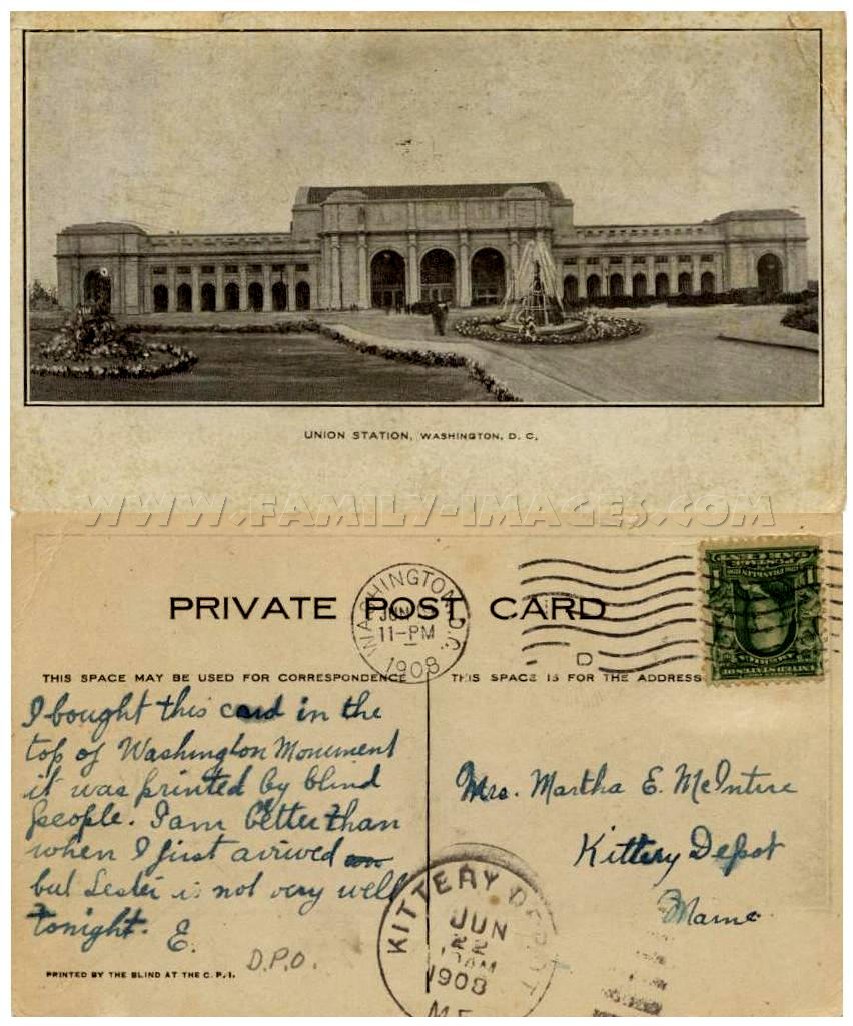 UNION STATION, WASHINGTON, D. C.
WWW.FAMILY-IMAGES.COM
PRIVATE POST CARD
WASHINGTON, D.C.
JUN
11-PM
1908
D
THIS SPACE MAY BE USED FOR CORRESPONDENCE
THIS SPACE IS FOR THE ADDRESS
I bought this card in the
top of Washington Monument
it was printed by blind
people. I am better than
when I first arrived
but Lester is not very well
tonight. E.
D.P.O.
PRINTED BY THE BLIND AT THE C.P.I.
Mrs. Martha E. McIntire
Kittery Depot
Maine
KITTERY DEPOT
JUN
22
AM
1908
ME